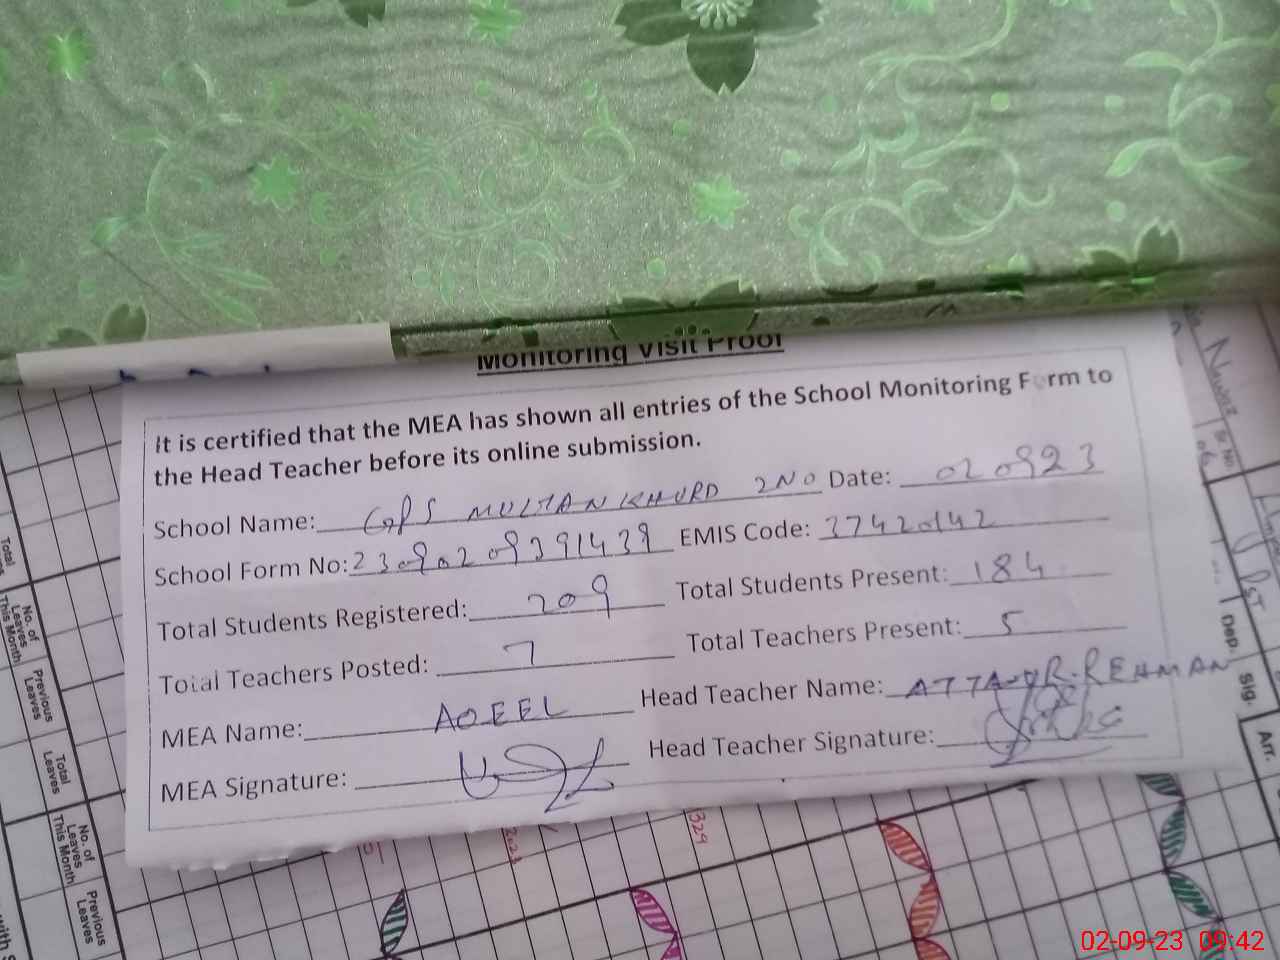 Monitoring Visit Proof
It is certified that the MEA has shown all entries of the School Monitoring Form to
the Head Teacher before its online submission.
School Name: GPS MULTAN KHURD 2NO Date: 020923
School Form No: 23090209391439 EMIS Code: 37420142
Total Students Registered: 209 Total Students Present: 184
Total Teachers Posted: 7 Total Teachers Present: 5
MEA Name: AQEEL Head Teacher Name: ATTA-UR-REHMAN
MEA Signature: Head Teacher Signature:
Total
No. of
Leaves
This Month
Previous
Leaves
Total
Leaves
No. of
Leaves
This Month
Previous
Leaves
Nawaz
PST
Dep.
Sig.
Arr.
02-09-23 09:42